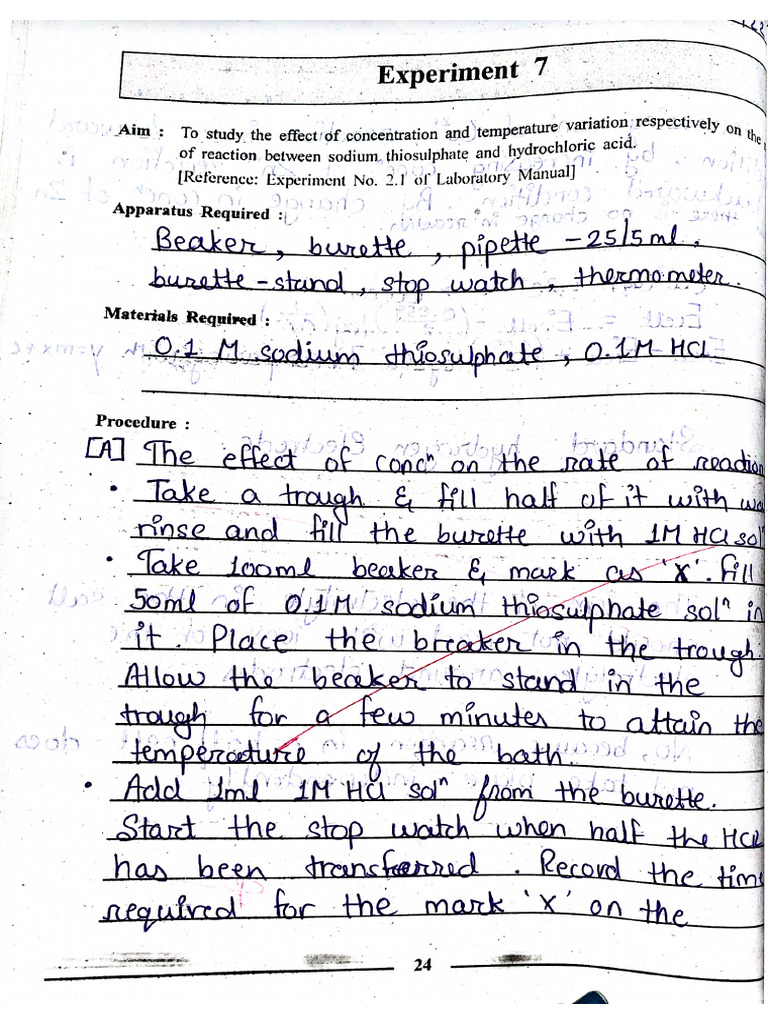 Experiment 7
Aim : To study the effect of concentration and temperature variation respectively on the
of reaction between sodium thiosulphate and hydrochloric acid.
[Reference: Experiment No. 2.1 of Laboratory Manual]
Apparatus Required :
Beaker, burette, pipette - 25/5ml,
burette-stand, stop watch, thermometer.
Materials Required :
0.1 M sodium thiosulphate, 0.1M HCl
Procedure :
[A] The effect of concⁿ on the rate of reaction
• Take a trough & fill half of it with
rinse and fill the burette with 1M HCl solⁿ
• Take 100ml beaker & mark as 'X'. fill
50ml of 0.1M sodium thiosulphate solⁿ in
it. Place the breaker in the trough.
Allow the beaker to stand in the
trough for a few minutes to attain the
temperature of the bath.
• Add 1ml 1M HCl solⁿ from the burette.
Start the stop watch when half the HCl
has been transferred. Record the time
required for the mark 'X' on the
24